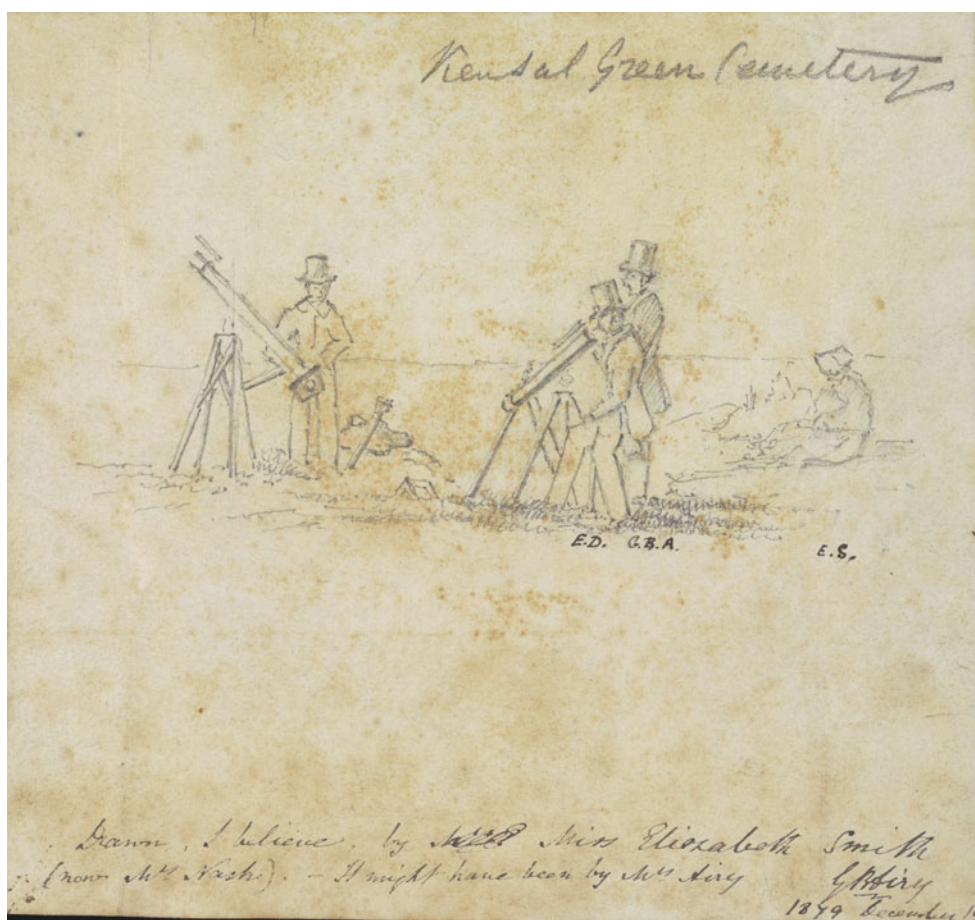 Kensal Green Cemetery
E.D. G.B.A. E.S.
Drawn, I believe, by Miss Elizabeth Smith
(now Mrs Nash). – It might have been by Mrs Airy
GBAiry
1879 December